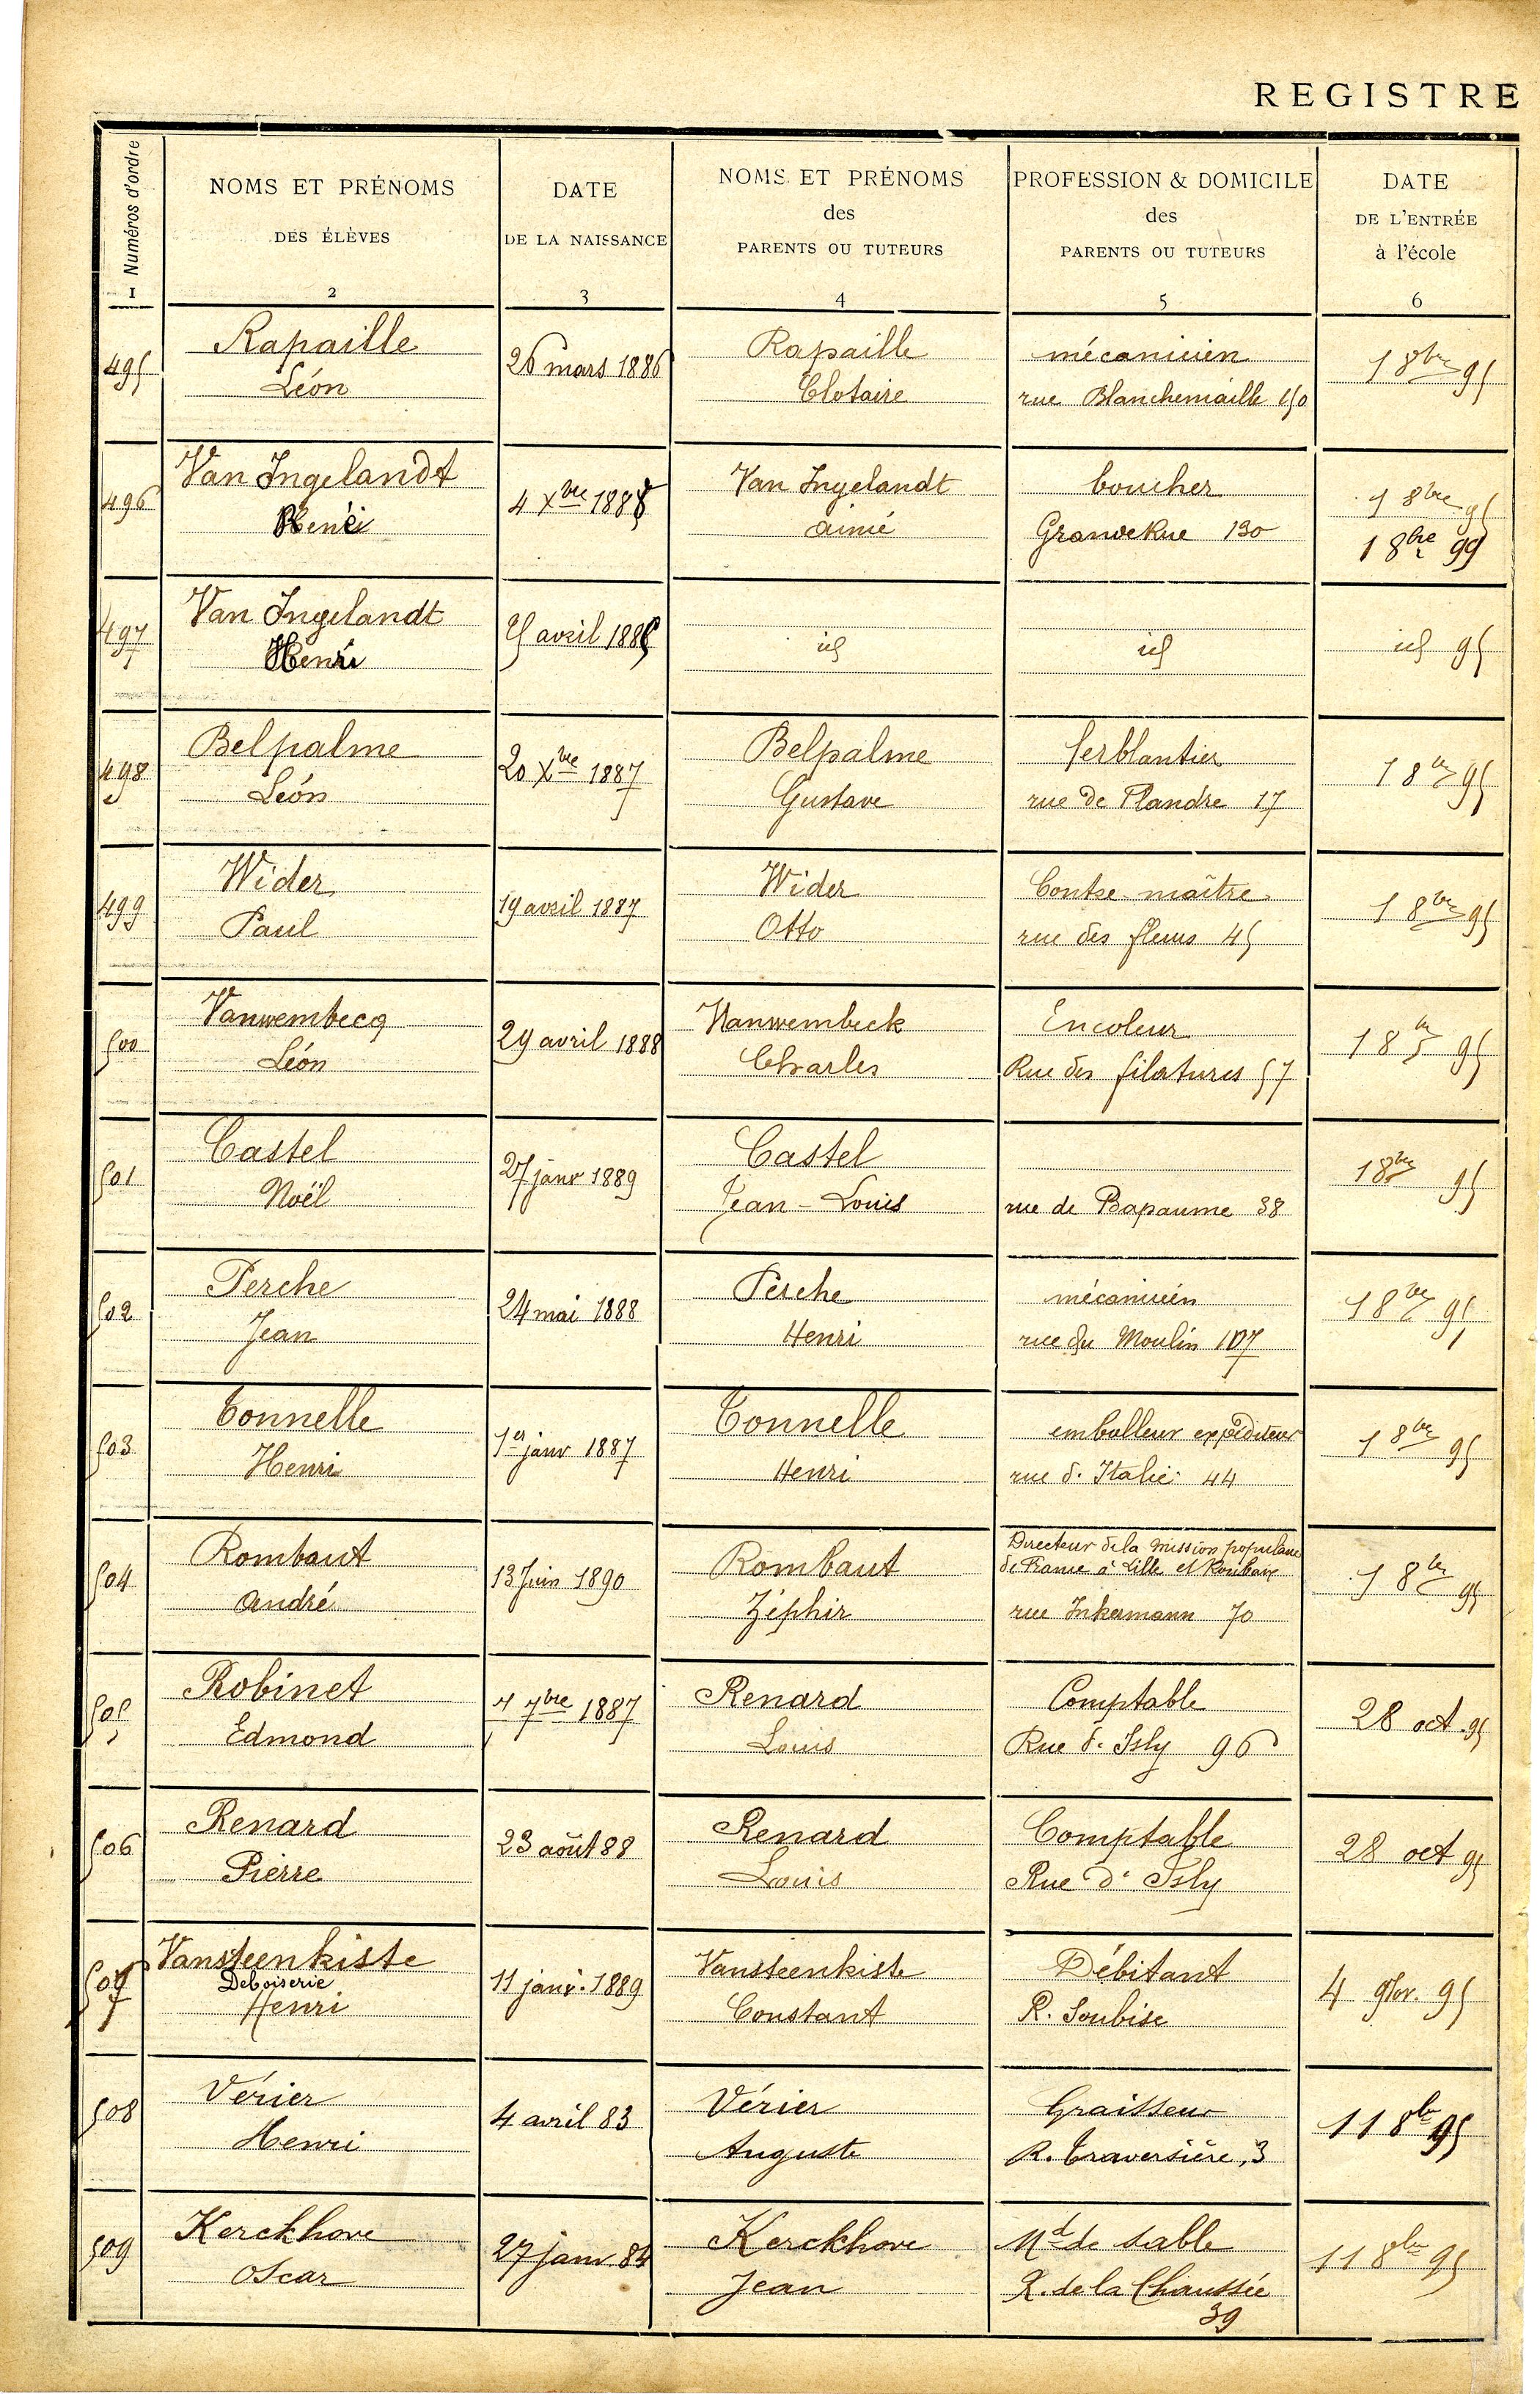 REGISTRE
Numéros d'ordre
1
NOMS ET PRÉNOMS
DES ÉLÈVES
2
DATE
DE LA NAISSANCE
3
NOMS ET PRÉNOMS
des
PARENTS OU TUTEURS
4
PROFESSION & DOMICILE
des
PARENTS OU TUTEURS
5
DATE
DE L'ENTRÉE
à l'école
6
495
Rapaille
Léon
26 mars 1886
Rapaille
Clotaire
mécanicien
rue Blanchemaille 150
1 8bre 95
496
Van Ingelandt
René
4 Xbre 1888
Van Ingelandt
aimé
boucher
Grande Rue 130
1 8bre 95
1 8bre 99
497
Van Ingelandt
Henri
5 avril 1885
id
id
id 95
498
Belpalme
Léon
20 Xbre 1887
Belpalme
Gustave
ferblantier
rue de Flandre 17
1 8bre 95
499
Wider
Paul
19 avril 1887
Wider
Otto
Contre-maître
rue des fleurs 45
1 8bre 95
500
Vanwembecq
Léon
29 avril 1888
Vanwembeck
Charles
Encoleur
Rue des filatures 57
1 8bre 95
501
Castel
Noël
27 janv 1889
Castel
Jean-Louis
rue de Bapaume 38
1 8bre 95
502
Perche
Jean
24 mai 1888
Perche
Henri
mécanicien
rue du Moulin 107
1 8bre 95
503
Tonnelle
Henri
1er janv 1887
Tonnelle
Henri
emballeur expéditeur
rue d'Italie 44
1 8bre 95
504
Rombaut
André
13 Juin 1890
Rombaut
Zéphir
Directeur de la mission populaire
de France à Lille et Roubaix
rue Inkermann 70
1 8bre 95
505
Robinet
Edmond
4 7bre 1887
Renard
Louis
Comptable
Rue d'Isly 96
28 oct. 95
506
Renard
Pierre
23 août 88
Renard
Louis
Comptable
Rue d'Isly
28 oct 95
507
Vansteenkiste
Deboiserie
Henri
11 janv. 1889
Vansteenkiste
Constant
Débitant
R. Soubise
4 9br. 95
508
Vérier
Henri
4 avril 83
Vérier
Auguste
Graisseur
R. Traversière, 3
11 8bre 95
509
Kerckhove
Oscar
27 janv 84
Kerckhove
Jean
Md de sable
R. de la Chaussée
39
11 8bre 95